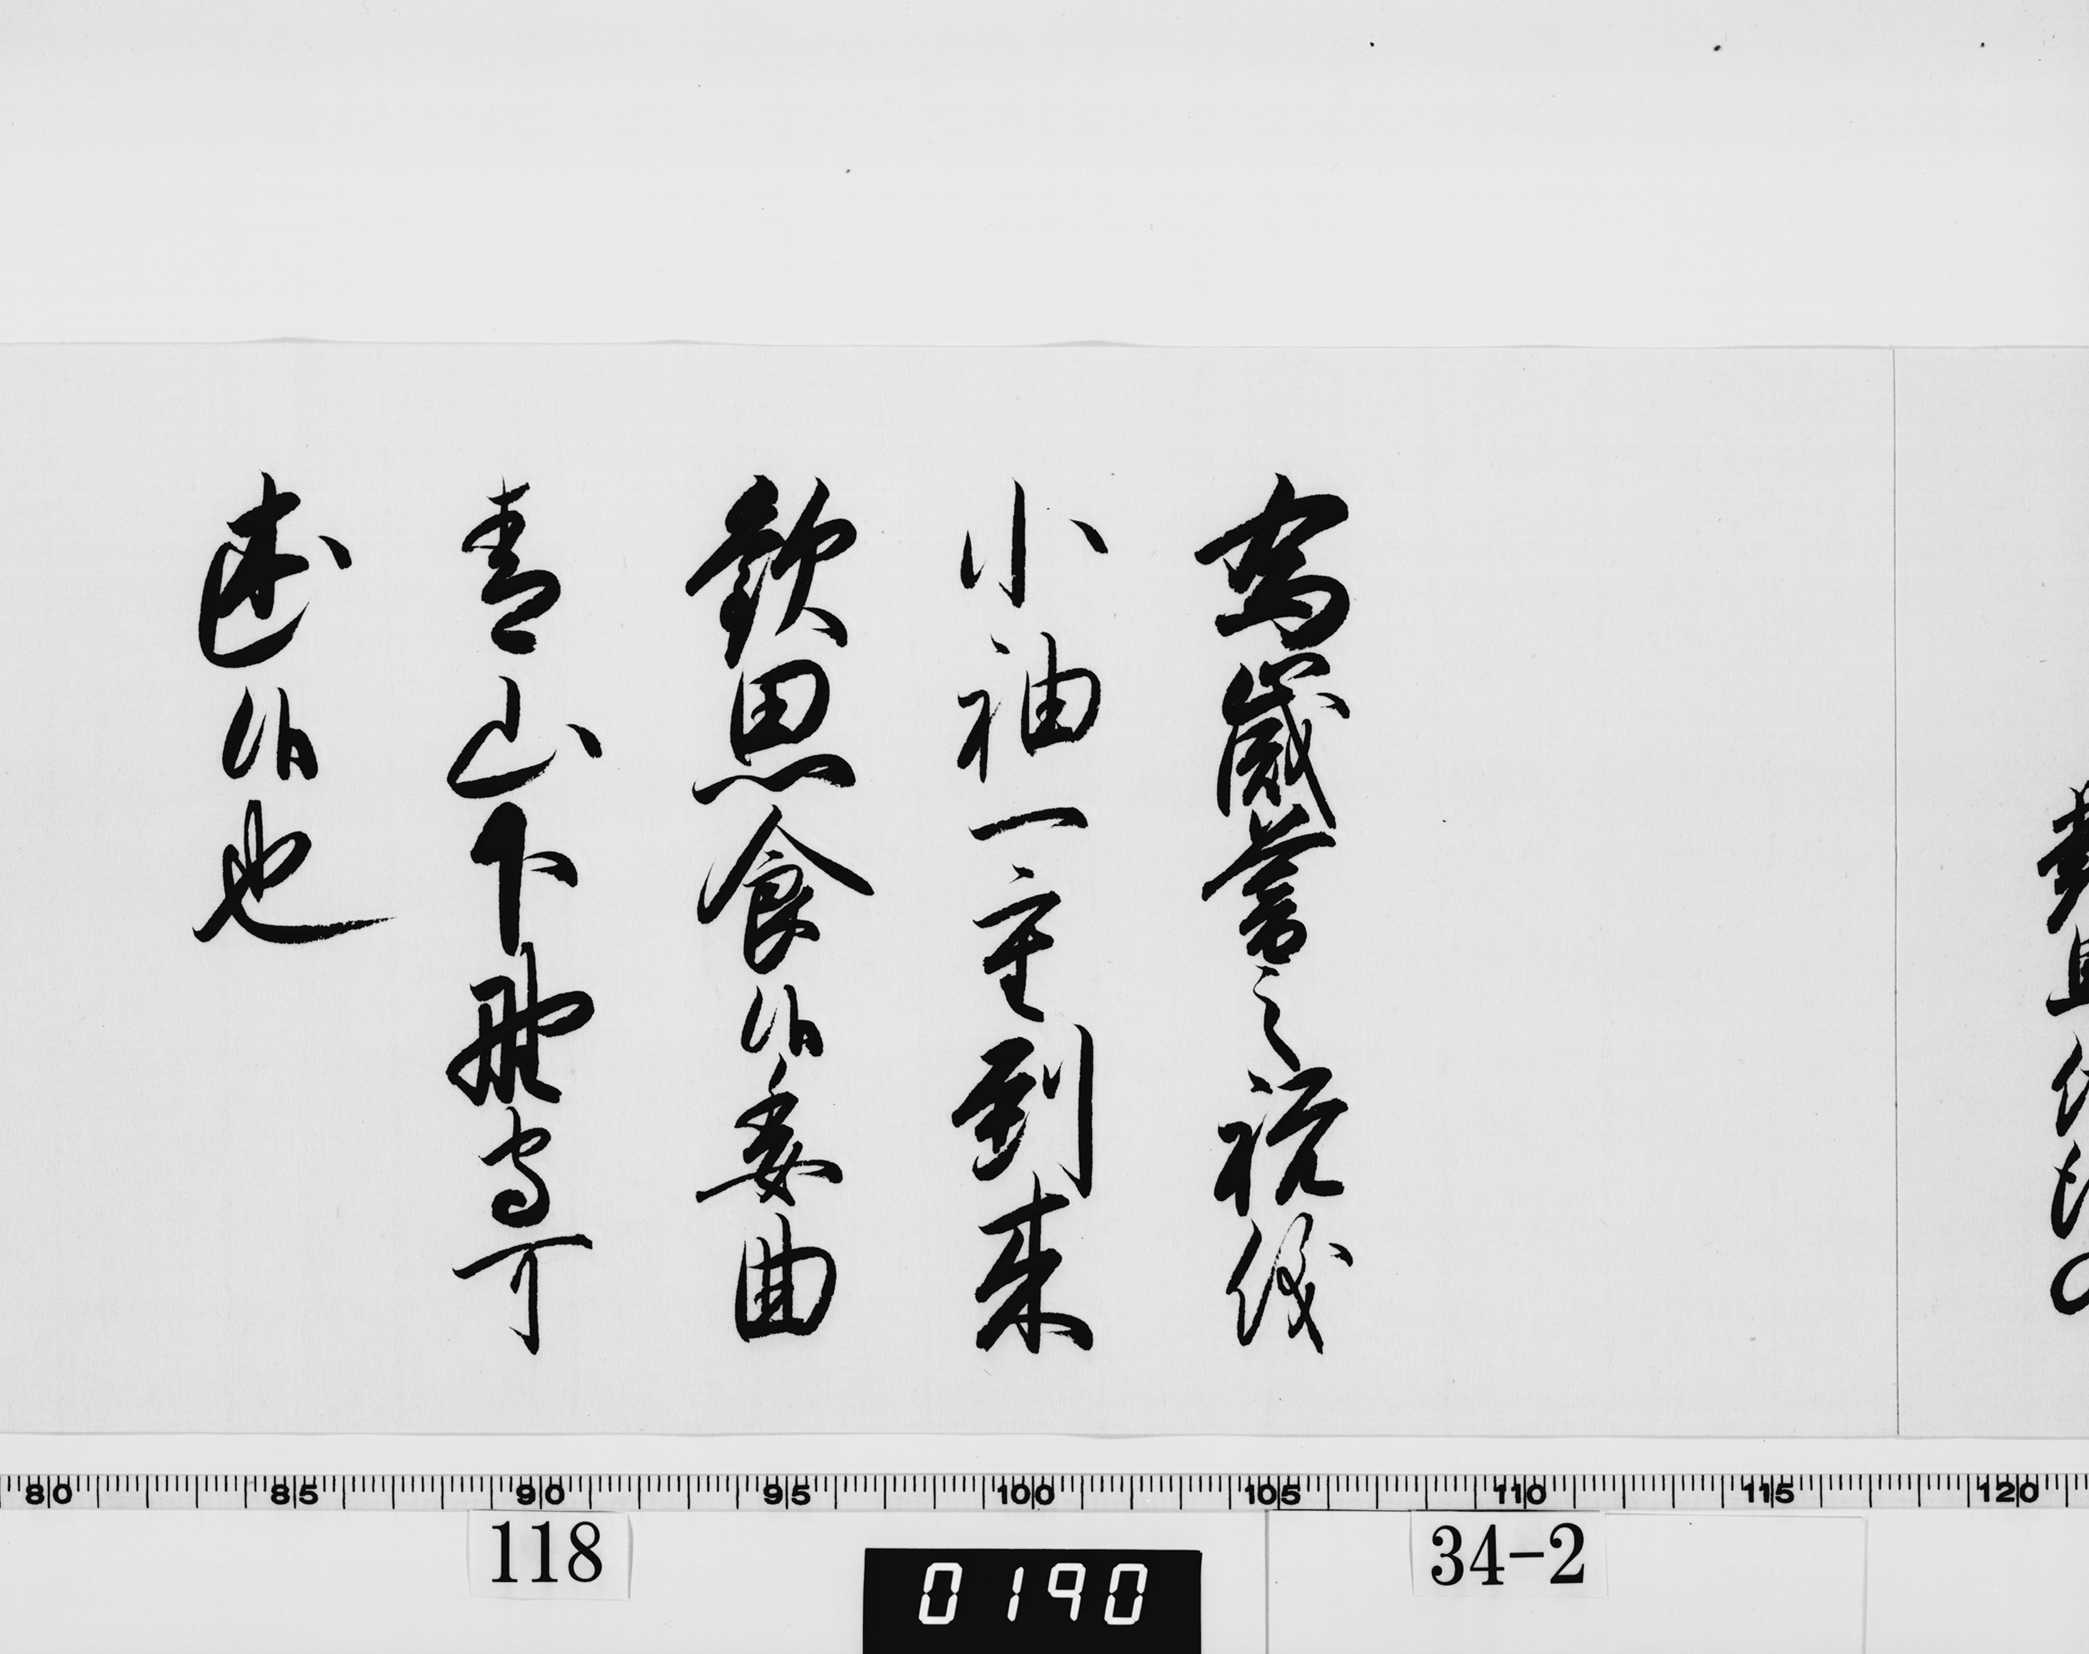 為歳暮之祝儀
小袖一重到来
歓思食候委曲
青山下野守可
述候也
80 85 90 95 100 105 110 115 120
118
0190
34-2